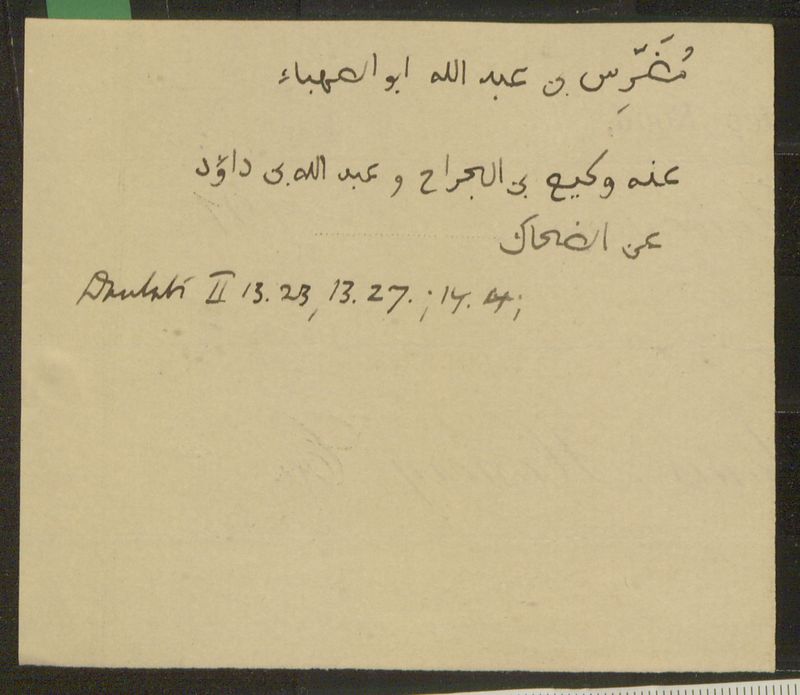 مُضَرِّس بن عبد الله ابو الصهباء
عنه وكيع بن الجراح و عبد الله بن داؤد
عن الضحاك
Daulabi II 13.23, 13.27.; 14.4;